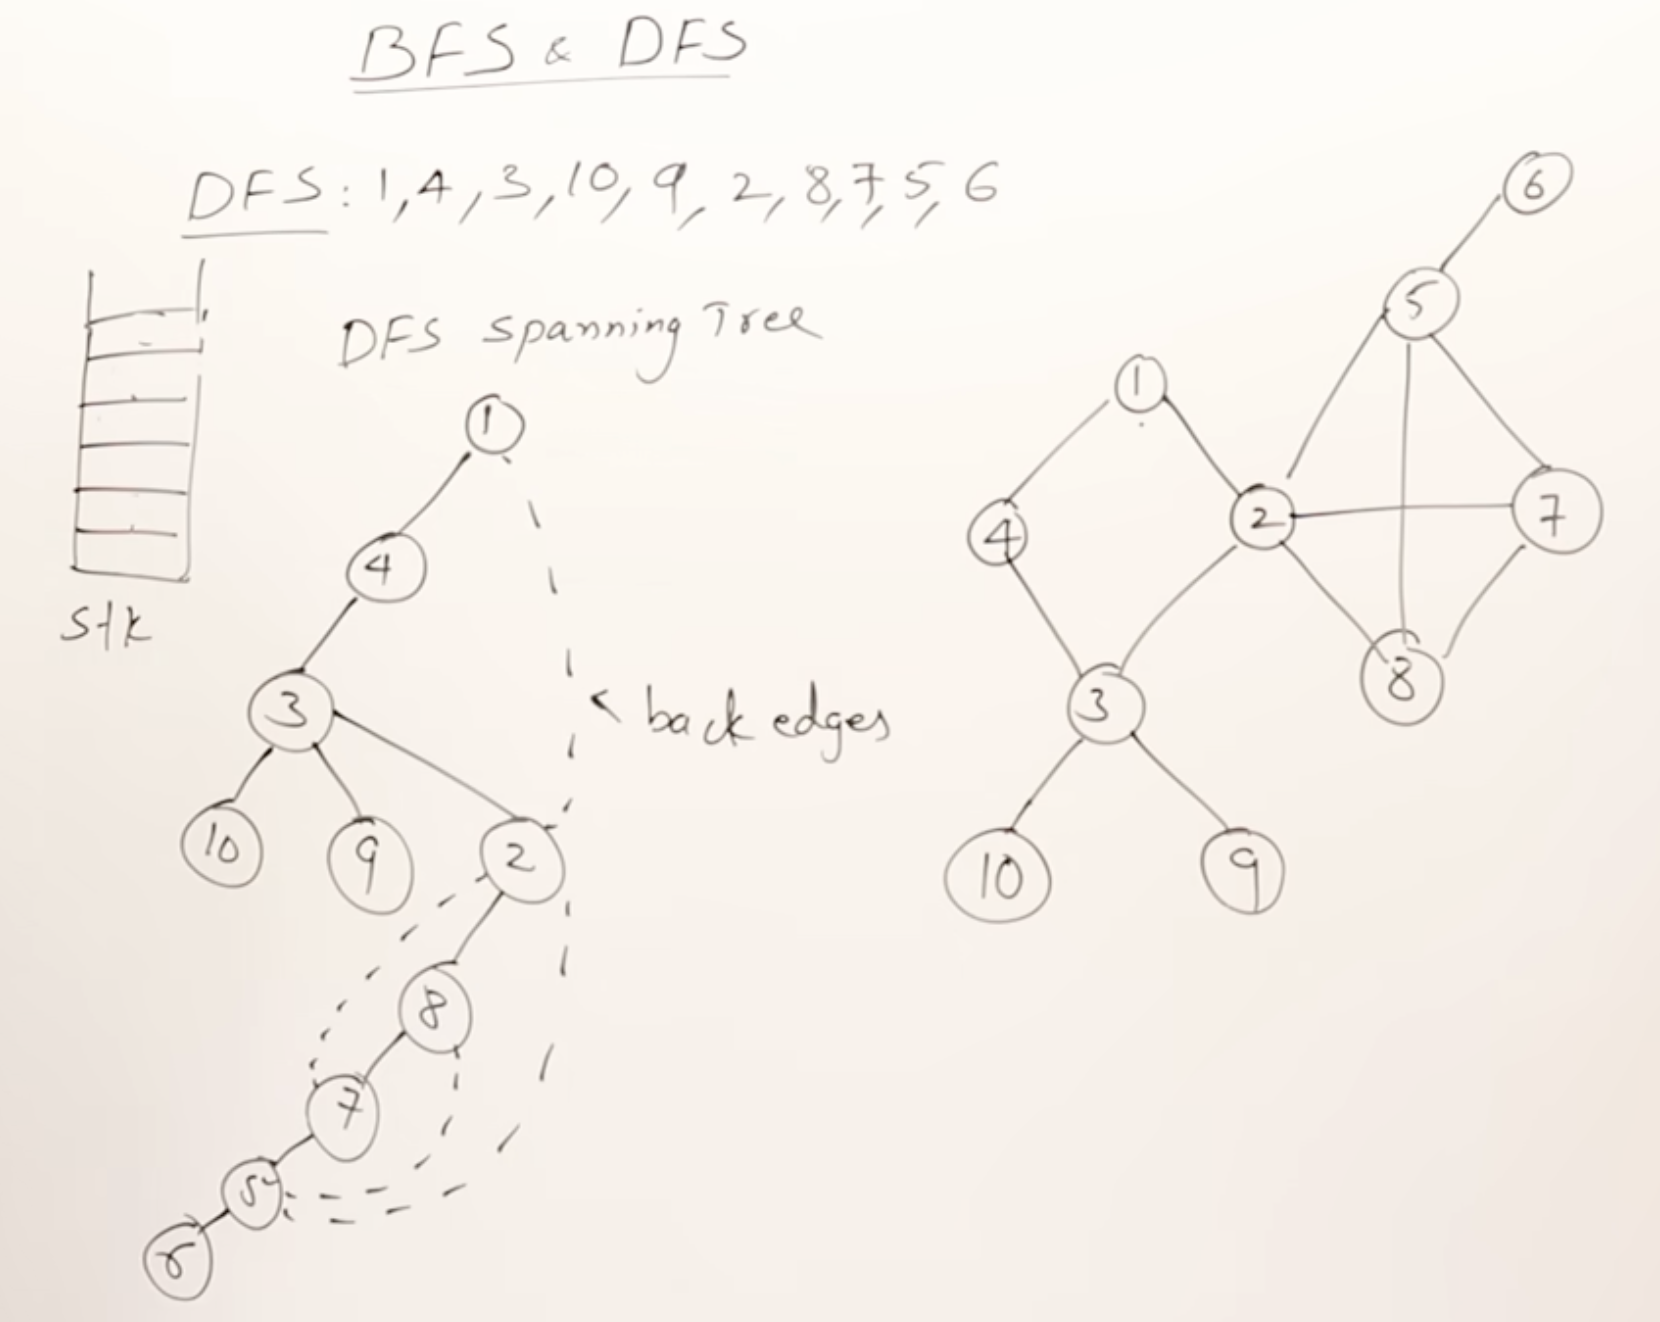 BFS & DFS
DFS: 1, 4, 3, 10, 9, 2, 8, 7, 5, 6
stk
DFS Spanning Tree
1
4
3
10
9
2
8
7
5
6
back edges
6
5
1
4
2
7
3
8
10
9